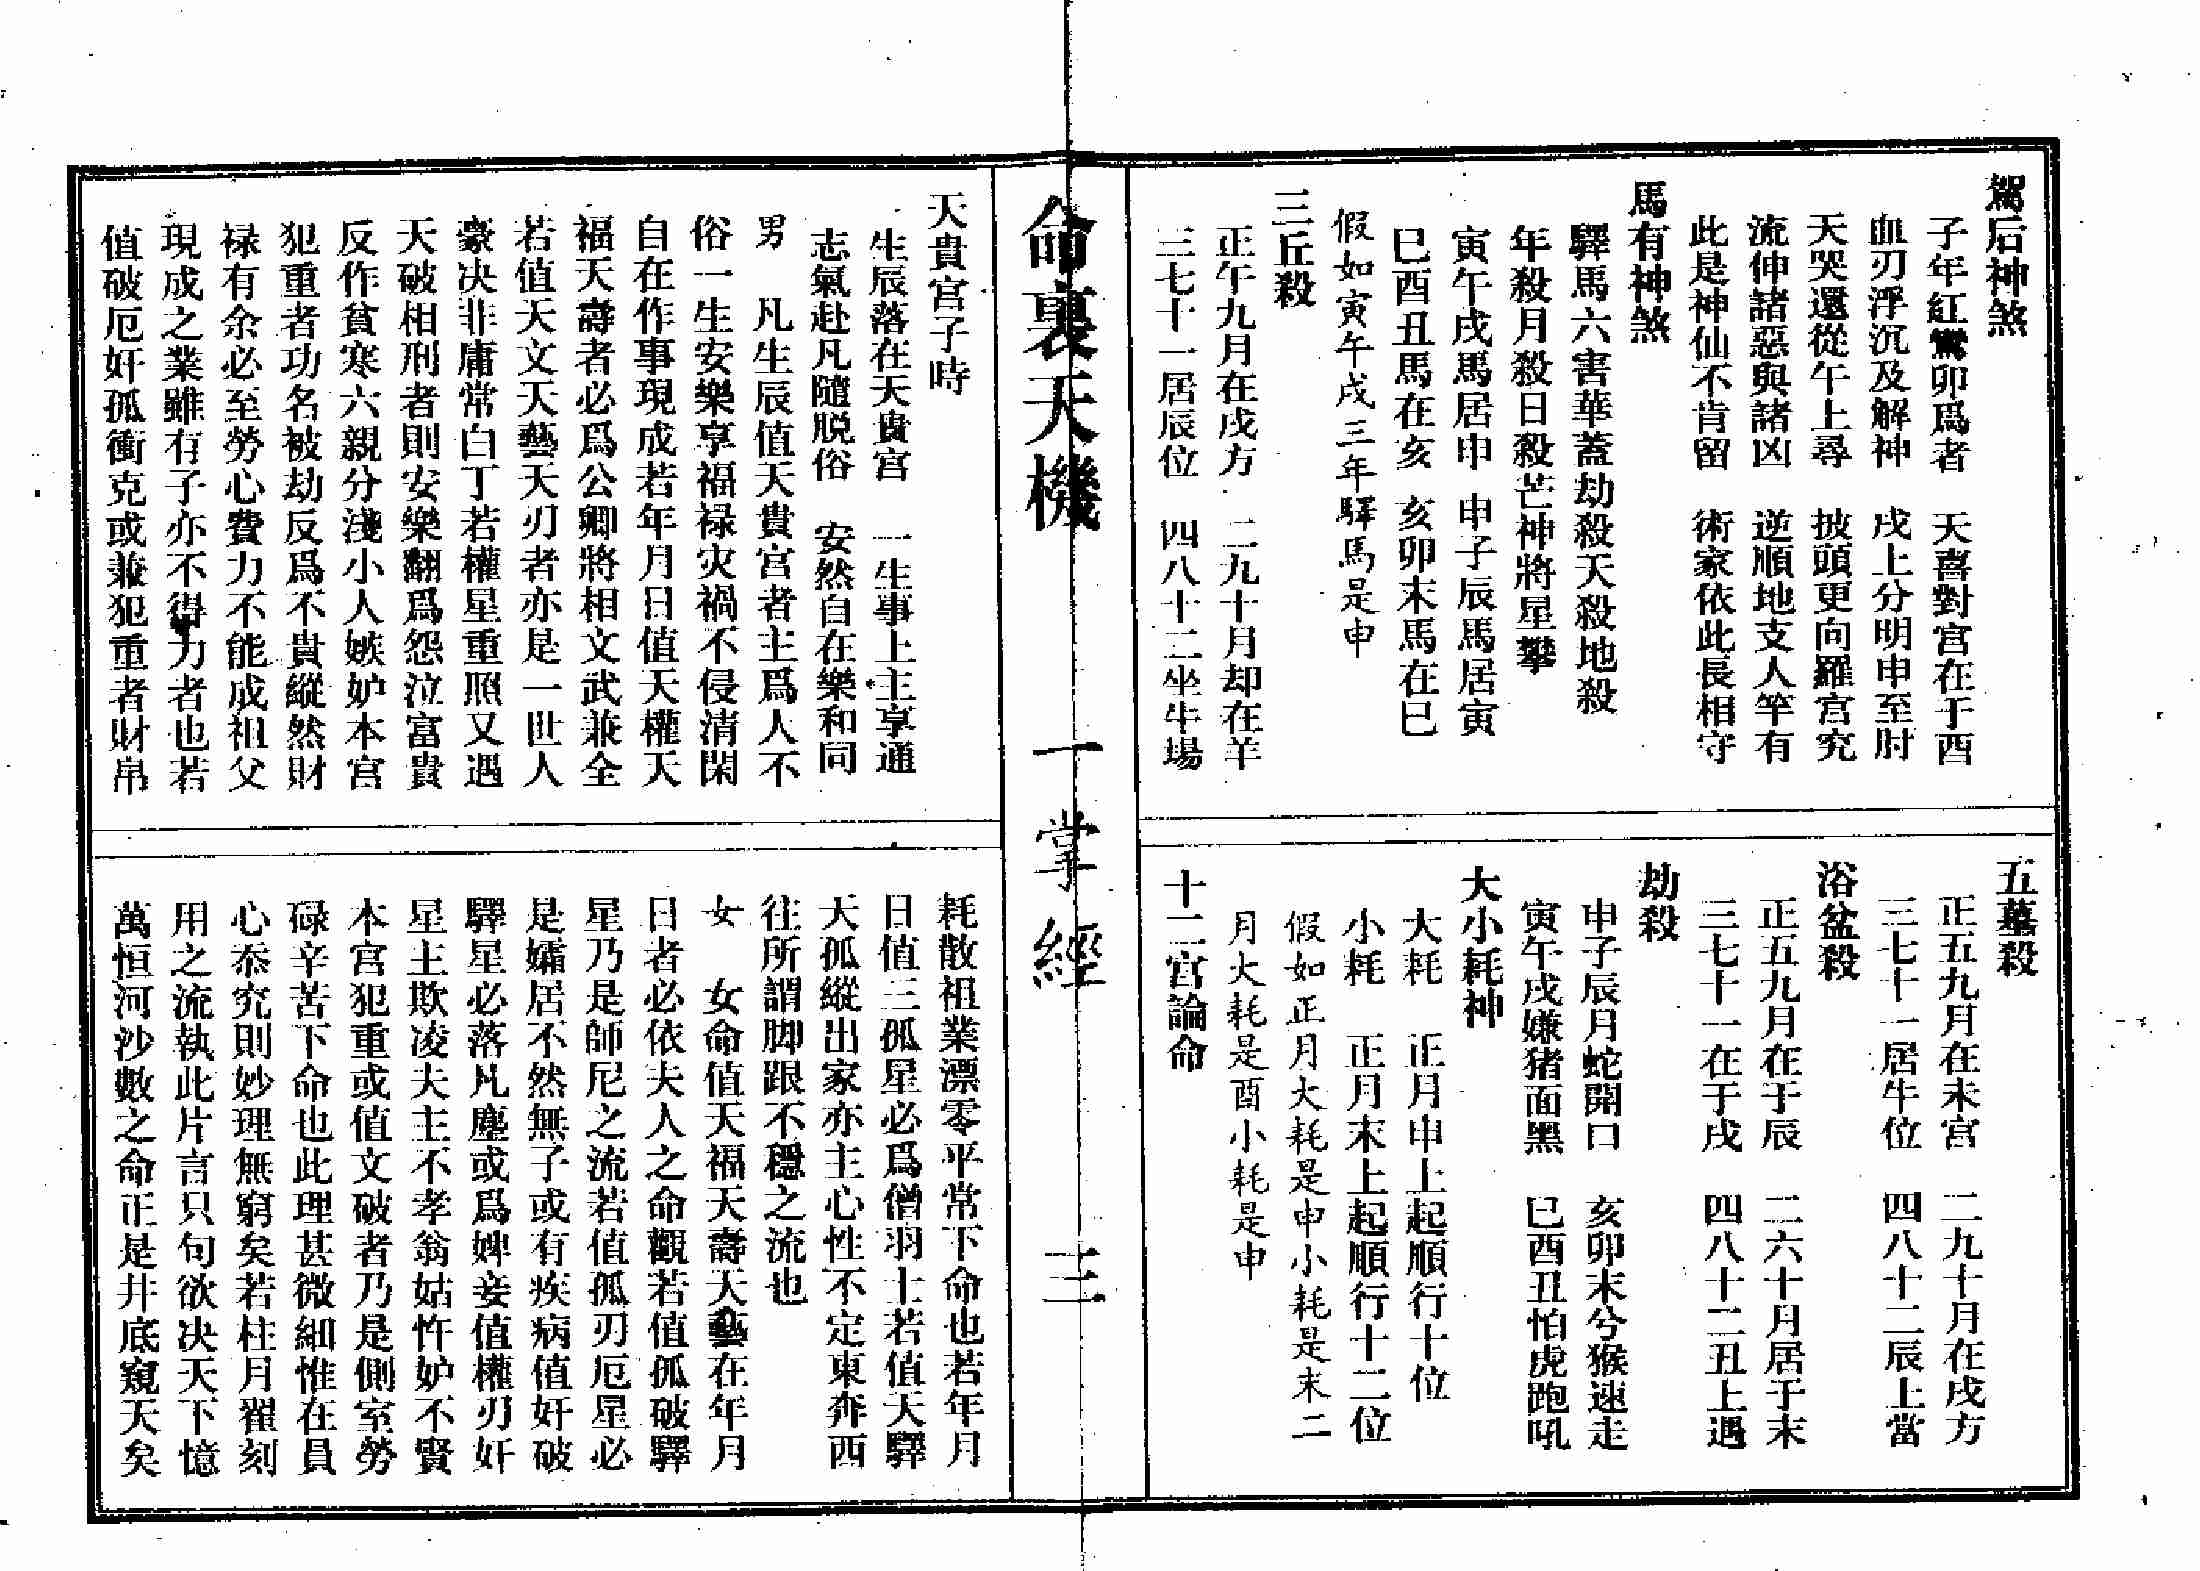 駕后神煞
子年紅鸞卯爲者　天喜對宮在于酉
血刃浮沉及解神　戌上分明申至肘
天哭還從午上尋　披頭更向羅宮究
流伸諸惡與諸凶　逆順地支人竿有
此是神仙不肯留　術家依此長相守
馬有神煞
驛馬六害華蓋劫殺天殺地殺
年殺月殺日殺芒神將星攀
寅午戌馬居申　申子辰馬居寅
巳酉丑馬在亥　亥卯末馬在巳
假如寅午戌三年驛馬是申
三丘殺
正午九月在戌方　二九十月却在羊
三七十一居辰位　四八十二坐牛場
五墓殺
正五九月在未宮　二九十月在戌方
三七十一居牛位　四八十二辰上當
浴盆殺
正五九月在于辰　二六十月居于末
三七十一在于戌　四八十二丑上遇
劫殺
申子辰月蛇開口　亥卯末兮猴速走
寅午戌嫌猪面黑　巳酉丑怕虎跑吼
大小耗神
大耗　正月申上起順行十位
小耗　正月末上起順行十二位
假如正月大耗是申小耗是末二
月大耗是酉小耗是申
十二宮論命
命裏天機　一掌經　三
天貴宮子時
生辰落在天貴宮　一生事上主享通
志氣赴凡隨脱俗　安然自在樂和同
男　凡生辰值天貴宮者主爲人不
俗一生安樂享福禄灾禍不侵清閑
自在作事現成若年月日值天權天
福天壽者必爲公卿將相文武兼全
若值天文天藝天刃者亦是一世人
豪决非庸常白丁若權星重照又遇
天破相刑者則安樂翻爲怨泣富貴
反作貧寒六親分淺小人嫉妒本宮
犯重者功名被劫反爲不貴縱然財
禄有余必至勞心費力不能成祖父
現成之業雖有子亦不得力者也若
值破厄奸孤衝克或兼犯重者財帛
耗散祖業漂零平常下命也若年月
日值三孤星必爲僧羽士若值天驛
天孤縱出家亦主心性不定東奔西
往所謂脚跟不穩之流也
女　女命值天福天壽天藝在年月
日者必依夫人之命觀若值孤破驛
星乃是師尼之流若值孤刃厄星必
是孀居不然無子或有疾病值奸破
驛星必落凡塵或爲婢妾值權刃奸
星主欺凌夫主不孝翁姑忤妒不賢
本宮犯重或值文破者乃是側室勞
碌辛苦下命也此理甚微細惟在員
心叅究則妙理無窮矣若柱月翟刻
用之流執此片言只句欲决天下憶
萬恒河沙數之命正是井底窺天矣